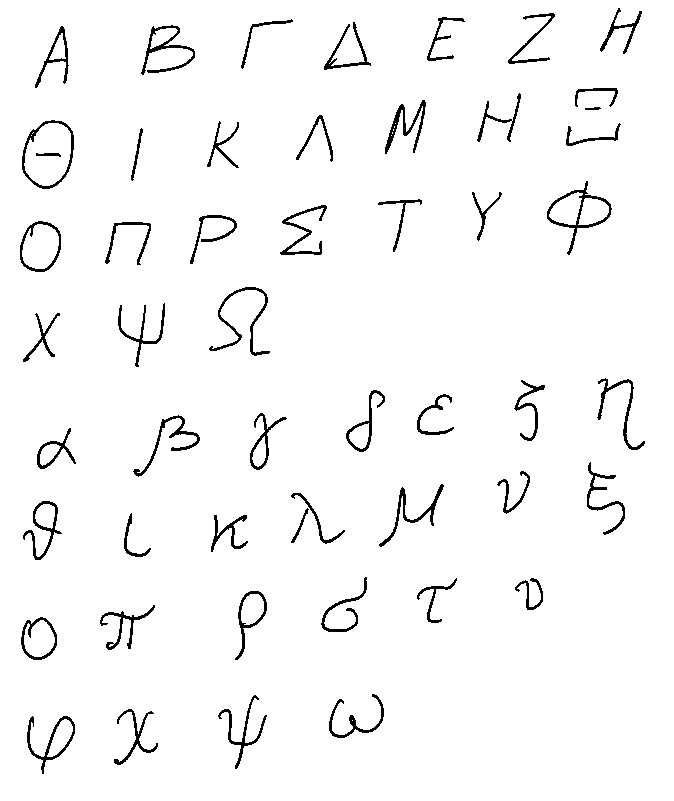 Α Β Γ Δ Ε Ζ Η
Θ Ι Κ Λ Μ Η Ξ
Ο Π Ρ Σ Τ Υ Φ
Χ Ψ Ω
α β γ δ ε ζ η
ϑ ι κ λ μ ν ξ
ο π ρ σ τ υ
φ χ ψ ω